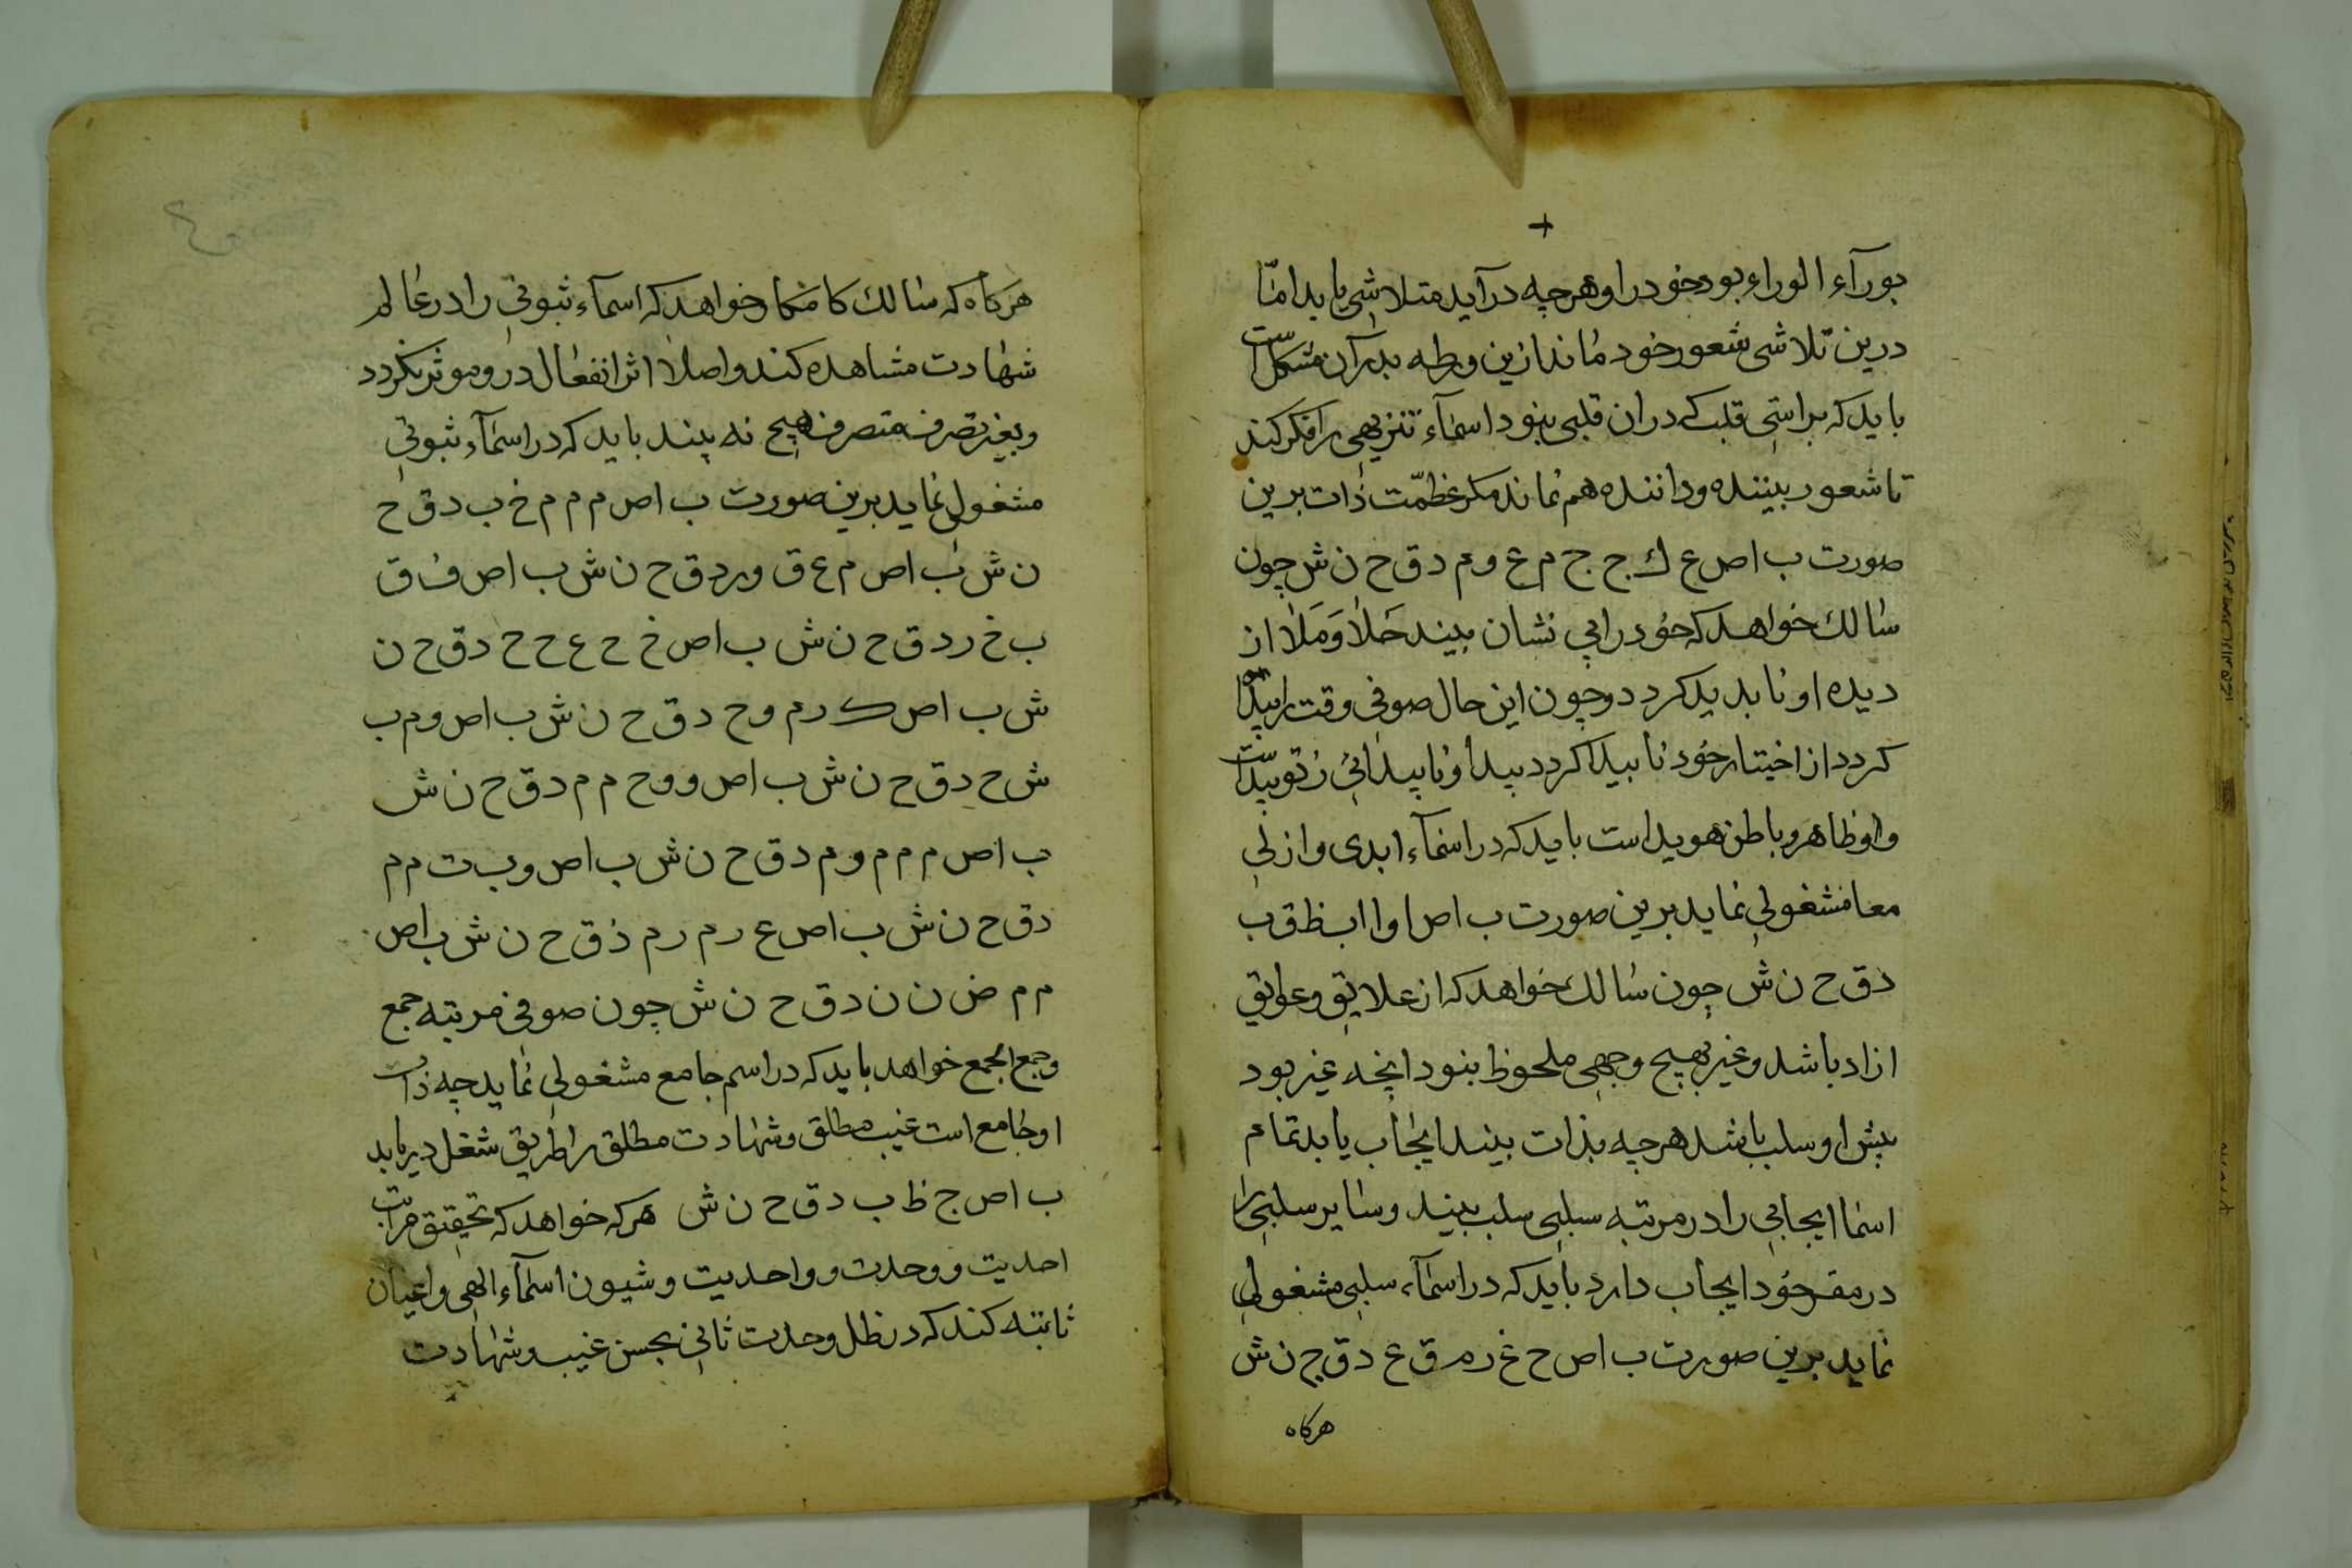 بورآء الوراء بود خود را و هرچه درآید متلاشی یابد امّا
درین تلاشی شعور خود ماند ازین ورطه بدرآن مشکل است
باید که براستی قلب که دران قلبی بنود اسمآء تنزیهی را فکر کند
تا شعور بیننده و داننده هم نماند مکر عظمّت ذات برین
صورت ب اص ع ك ج ج م ع و م د ق ح ن ش چون
سالك خواهد که خود را بی نشان بیند خلا و ملا از
دیده او نابدید کردد و چون این حال صوفی وقت را پیدا
کردد از اختیار خود نا پیدا کردد پیدا و ناپیدائی ز تو پیداست
و او ظاهر و باطن هویداست باید که در اسمآء ابدی و ازلی
معا مشغولی نماید برین صورت ب اص ا و ا ا ب ظ ق ب
د ق ح ن ش چون سالك خواهد که از علایق و عوایق
ازاد باشد و غیر بهیچ وجهی ملحوظ بنود انچه غیر بود
پیش او سلب باشد هرچه بذات بیند ایجاب یابد تمام
اسما ایجابی را در مرتبه سلبی سلب بیند و سایر سلبی را
در مقر خود ایجاب دارد باید که در اسمآء سلبی مشغولی
نماید برین صورت ب اص ح غ ر م ق ع د ق ح ن ش
هرکاه
هرکاه که سالك کامکار خواهد که اسمآء ثبوتی را در عالم
شهادت مشاهده کند و اصلا اثر انفعال درو موثر نکردد
و بغیر تصرف متصرف هیچ نه بیند باید که در اسمآء ثبوتی
مشغولی نماید برین صورت ب اص م م م م خ ب د ق ح
ن ش ب اص م ع ق و ر د ق ح ن ش ب اص ف ق
ب خ ر د ق ح ن ش ب اص خ ح ع ح ح د ق ح ن
ش ب اص ك ر م و ح د ق ح ن ش ب اص و م ب
ش ح د ق ح ن ش ب اص و و ح م م د ق ح ن ش
ب اص م م م و م د ق ح ن ش ب اص و ب ت م م
د ق ح ن ش ب اص ع ر م ر م د ق ح ن ش ب اص
م م ض ن ن د ق ح ن ش چون صوفی مرتبه جمع
و جمع الجمع خواهد باید که در اسم جامع مشغولی نماید چه ذات
او جامع است غیب مطلق و شهادت مطلق را طریق شغل دریابد
ب اص ج ظ ب د ق ح ن ش هرکه خواهد که تحقیق مراتب
احدیت و وحدت و واحدیت و شیون اسمآء الهی و اعیان
ثابته کند که در ظل وحدت ثانی بجسن غیب و شهادت